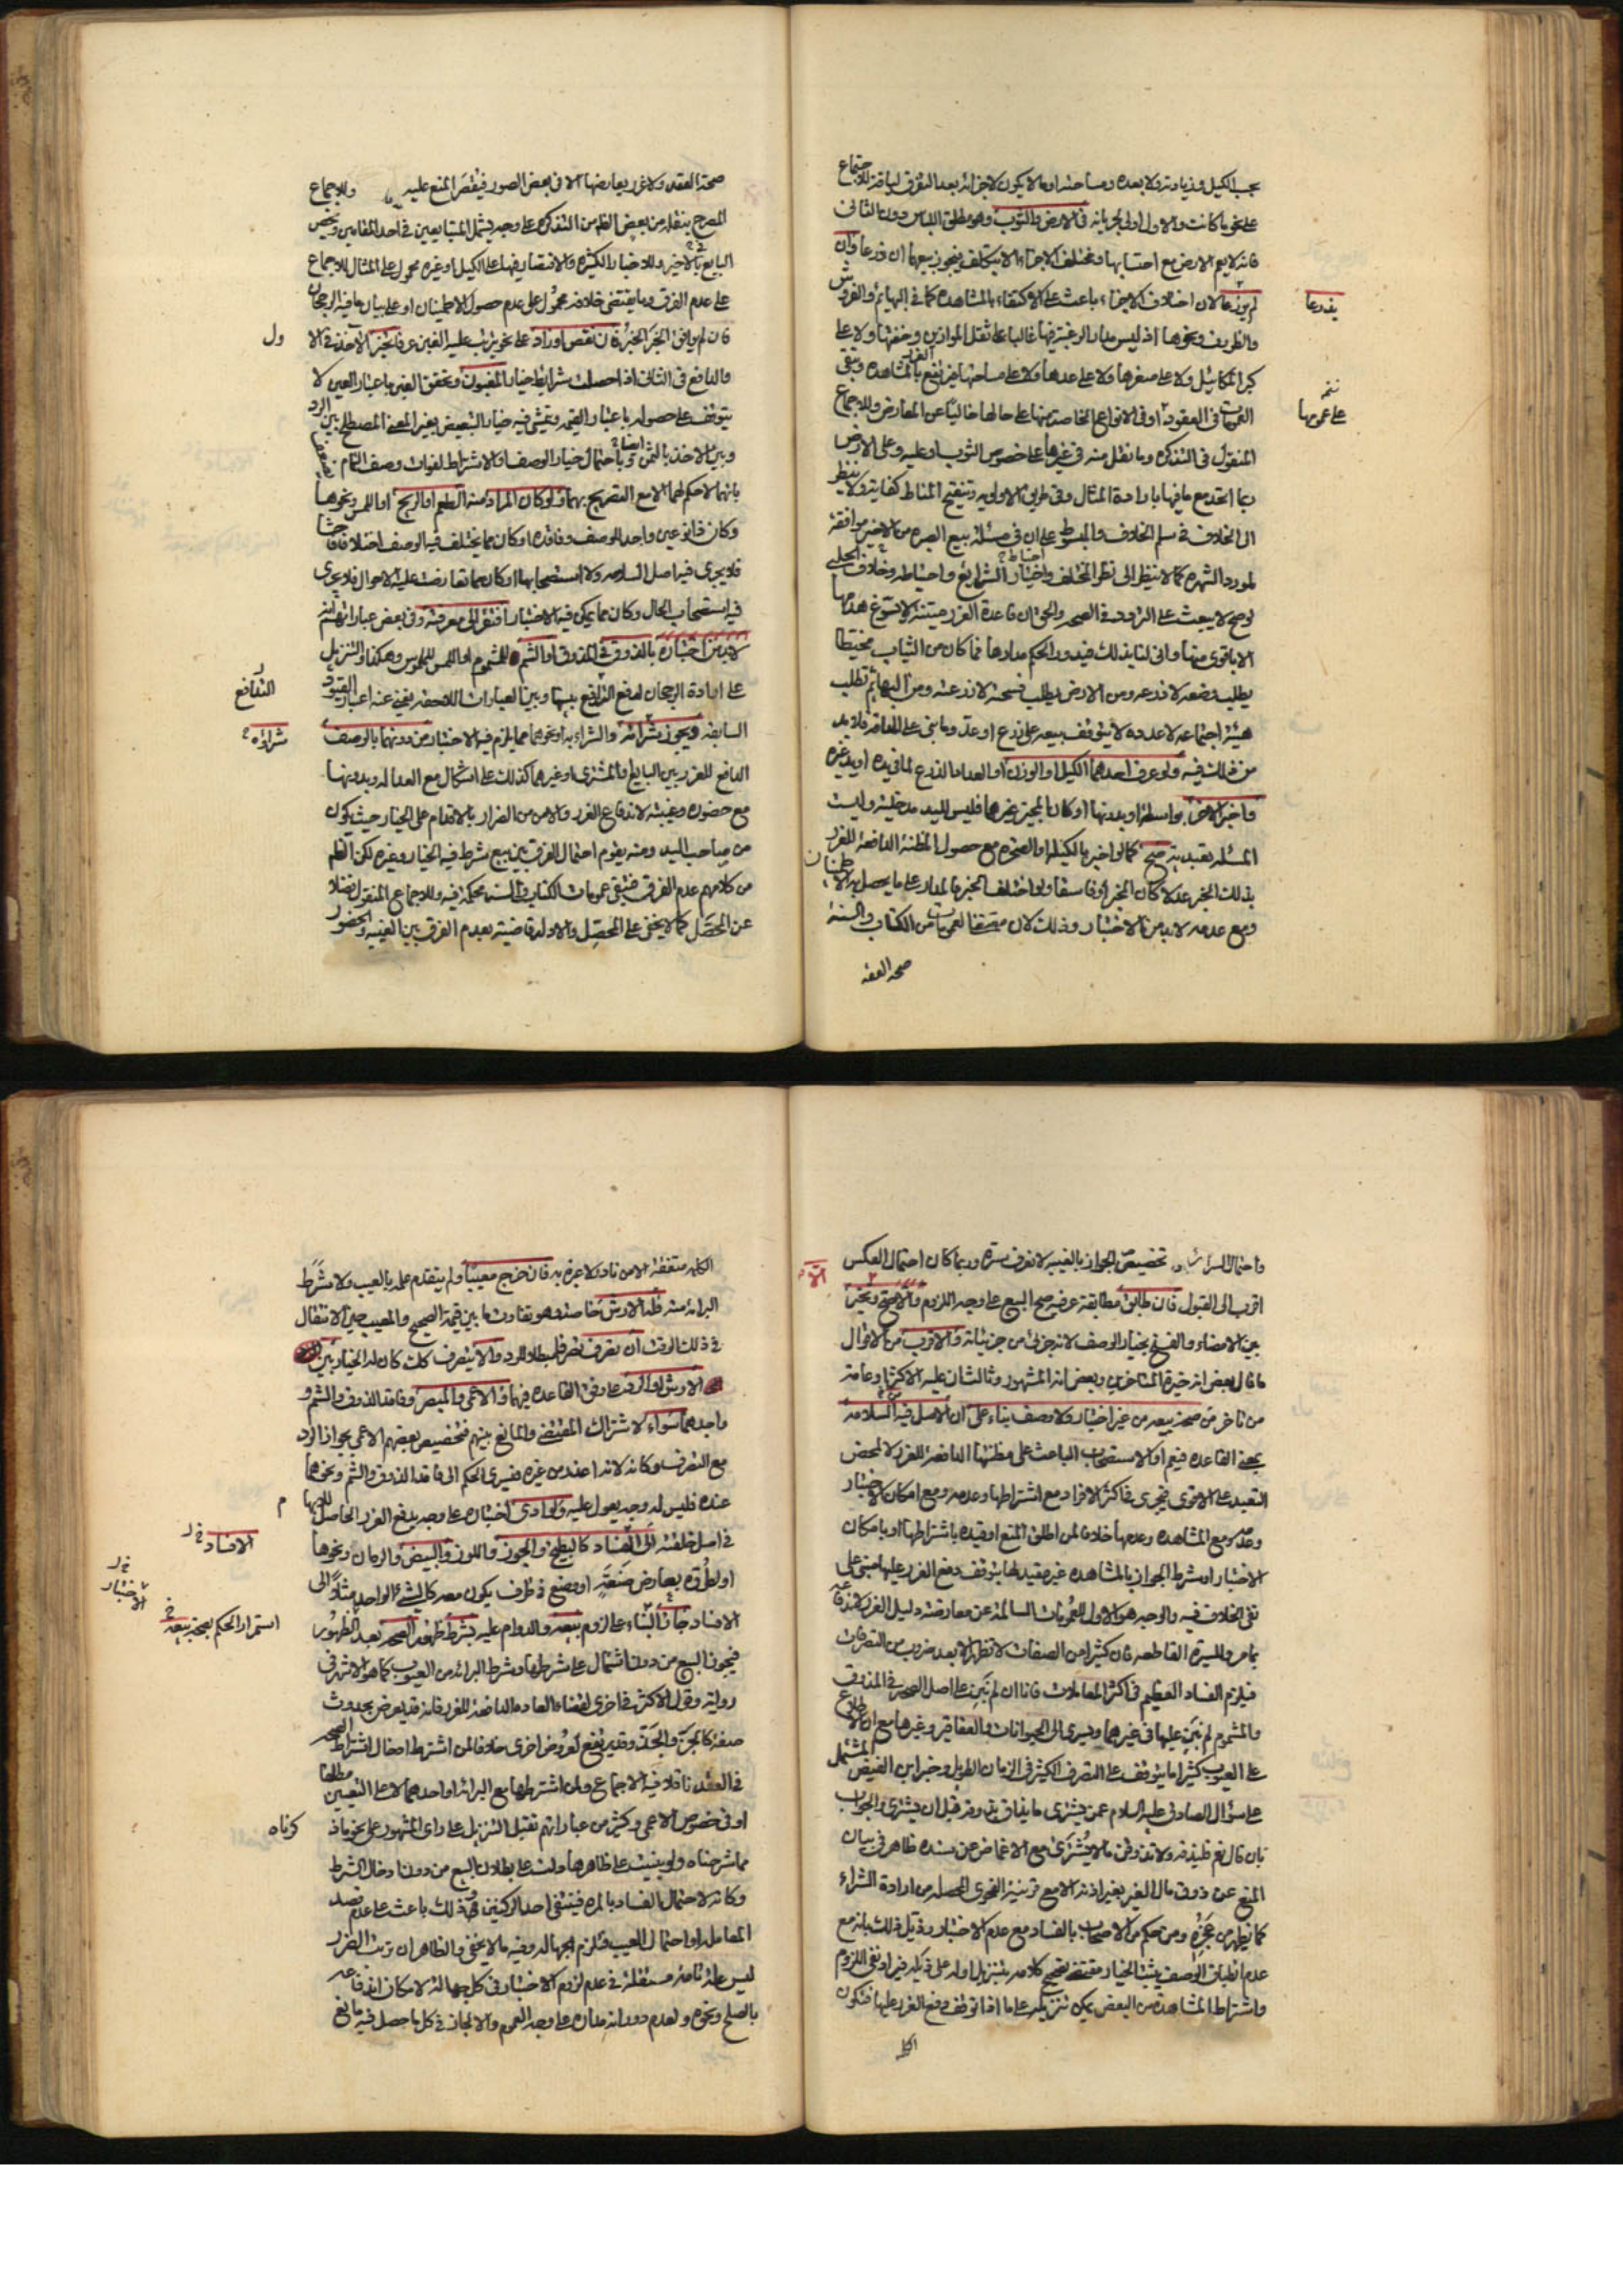 يجب الكيل وزيادته ولا بعده ومساحته اولا لا يكون لاجزائه بعد التفرق لياقة للاجتماع
على نحو ما كانت والاول اولى لجريانه في الارض والثوب وهو مطلق اللباس دون الثاني
فانه لا يعم الارض مع احتسابها ومختلف الاجزاء الا بتكلف فيجوز بيعهما ان ذرعا وان
لم يذرعا لان اختلاف الاجزاء باعث على الاكتفاء بالمشاهدة كما في البهائم والفروش
يفدرعا
والظروف ونحوها اذ ليس مدار الرغبة فيها غالبا على ثقل الموازين وخفتها ولا على
كبر المكائيل ولا على صغرها ولا على عددها ولا على مساحتها فيرتفع الغرر بالمشاهدة وتبقى
العمومات في العقود او في الانواع الخاصة منها على حالها خاليا عن المعارض وللاجماع
على عمومها
المنقول في التذكرة وما نقل منه في غيرها على خصوص الثوب او عليه وعلى الارض
ربما اتحد مع ما فيها بارادة المثال وفي طريق الاولوية وتنقيح المناط كفاية ولا ينظر
الى الخلاف في سلم الخلاف والمبسوط على ان في مسئلة بيع الصبرة من الاخير موافقة
لمورد الشهرة كما لا ينظر الى نظر المختلف واختيار الشرايع واحتياطه وخلاف الحلبي
لوضح لا يبعث على التردد في الصحة والحق ان قاعدة الغرر متينة لا يسوغ هدمها
الا باقوى منها وانى لنا بذلك فيدور الحكم مدارها فما كان من الثياب مخيطا
يطلب وضعه لا ذرعه ومن الارض يطلب فسحته لا ذرعته ومن البهائم تطلب
هيئة اجتماعه لا عدده لا يتوقف بيعه على ذرع او عد وما بني على المداقة فلا بد
من ذلك فيه ولو عرف احدهما الكيل او الوزن او العد او الذرع لما في يده او يد غيره
واخبر الاخر بواسطة او بدونها او كان المخبر غيرهما فليس لليد مدخلية وليست
المسئلة تعبدية صح كما لو اخبر بالكيل او المتحرم مع حصول المظنة الدافعة للغرر
بذلك الخبر عدلا كان المخبر او فاسقا ولو اختلف المخبر فالمدار على ما يحصل به الاطمئنان
ومع عدمه لا بد من الاختبار وذلك لان مقتضى العمومات من الكتاب والسنة
صحة العقد
صحة العقد ولا غرر يعارضها الا في بعض الصور فيقصر المنع عليه وللاجماع
المصرح بنقله من بعض الظاهر من التذكرة على وجه يشمل المتبايعين في احد المقامين ويخص
البايع بالاخير وللاخبار الكثيرة والاقتصار فيها على الكيل او غيره محمول على المثال للاجماع
على عدم الفرق وما يقتضي خلافه محمول على عدم حصول الاطمينان او على بيان ما فيه الرجحان
فان لم يوافق الخبر المخبر فان نقص او زاد على نحو يترتب عليه الغبن عرفا تخير الاخذ في الاول
والدافع في الثاني اذا حصلت شرايط خيار المغبون وتحقق الغبن باعتبار العين لا
يتوقف على حصوله باعتبار القيمة ويتمشى فيه خيار التبعيض بغير المعنى المصطلح بين الرد
وبين الاخذ بالثمن ايضا وباحتمال خيار الوصف او الاشتراط لفوات وصف التمام
بانهما لا حكم لهما الا مع التصريح بهما ولو كان المراد منه الطعم او الريح او اللمس ونحوها
وكان ذا نوعين واجد الوصف وفاقده او كان مما يختلف فيه الوصف اختلافا فاحشا
فلا يجري فيه اصل السلامة ولا استصحابها او كان مما تعارضت عليه الاحوال فلا يجري
فيه استصحاب الحال وكان مما يمكن فيه الاختبار افتقر الى معرفته وفي بعض عباراتهم انه
لا بد من اختباره بالذوق في المذوق او الشم للمشموم او اللمس للملموس وهكذا والتنزيل
على ارادة الرجحان لدفع التدافع بينها وبين العبارات اللاحقة يغني عنه اعتبار القيود
التدافع
السابقة ويجوز شرائه والشراء به او نحوهما مما يلزم فيه الاختبار من دونهما بالوصف
شراؤه
الدافع للغرر بين البايع والمشتري او غيرهما كذلك على اشكال مع العدالة وبدونها
مع حضوره وغيبته لاندفاع الغرر والامن من الضرار بالاقدام على الخيار حيث يكون
من صاحب اليد ومنه يقوم احتمال الفرق بين بيع شرط فيه الخيار وغيره لكن الظاهر
من كلامهم عدم الفرق فتبقى عمومات الكتاب والسنة محكمة فيه وللاجماع المنقول فضلا
عن المحصل كما لا يخفى على المحصل والادلة قاضية بعدم الفرق بين الغيبة والحضور
واحتمال تخصيص الجواز بالغيبة لا نعرف سره وربما كان احتمال العكس
اقرب الى القبول فان طابق مطابقة عرفية صح البيع على وجه اللزوم والا صح وتخير
بين الامضاء والفسخ بخيار الوصف لانه جزئي من جزئياته والاقرب من الاقوال
ما قال بعض انه خيرة المتاخرين وبعض انه المشهور وثالث ان عليه الاكثر او عامة
من تاخر من صحة بيعه من غير اختبار ولا وصف بناء على ان الاصل فيه السلامة
بمعنى القاعدة فيعم او الاستصحاب الباعث على مظنتها الدافعة للغرر لا لمحض
التعبد على الاقوى فيجري في اكثر الافراد مع اشتراطها وعدمه ومع امكان الاختبار
وعدمه ومع المشاهدة وعدمها خلافا لمن اطلق المنع او قيده باشتراطها او بامكان
الاختبار او شرط الجواز بالمشاهدة غير مقيد لها بتوقف دفع الغرر عليها مبني على
نفي الخلاف فيه والوجه هو الاول للعمومات السالمة عن معارضة دليل الغرر لاندفاعه
بما مر وللسيرة القاطعة فان كثيرا من الصفات لا تظهر الا بعد ضروب من التصرفات
فيلزم الفساد العظيم في اكثر المعاملات فانا ان لم نبن على اصل الصحة في المذوق
والمشموم لم نبن عليها في غيرهما ويسري الى الحيوانات والعقاقير وغيرها مع ان الاطلاع
على العيوب كثيرا ما يتوقف على التصرف الكثير في الزمان الطويل وخبر ابن الفيض المشتمل
على سؤال الصادق عليه السلام عمن يشتري ما يذاق يذوقه قبل ان يشتري والجواب
بان قال نعم فليذقه ولا تذوقن ما لا يشترى مع الاغماض عن سنده ظاهر في بيان
المنع عن ذوق مال الغير بغير اذنه الا مع قرينة الفحوى المحصلة من ارادة الشراء
كما يظهر من عجزه ومن حكم من الاصحاب بالفساد مع عدم الاختبار وذيل ذلك بانه مع
عدم انطباق الوصف يثبت الخيار مقتضى تصحيح كلامه بتنزيل اوله على ذيله فيراد نفي اللزوم
واشتراط المشاهدة من البعض يمكن تنزيله على ما اذا توقف دفع الغرر عليها فتكون
الكل
الكلمة متفقة الا من نادر لا عبرة به فان خرج معيبا ولم يتقدم علمه بالعيب ولا شرط
البرائة منه فله الارش خاصة وهو تفاوت ما بين قيمة الصحيح والمعيب حين الانتقال
في ذلك الوقت ان تصرف تصرفا مبطلا للرد والا يتصرف كذلك كان له الخيار بين
الارش او الرد على وفق القاعدة فيهما والاعمى والمبصر وفاقد الذوق والشم و
واجدهما سواء لاشتراك المقتضي والمانع بينهم فتخصيص بعضهم الاعمى بجواز الرد
مع التصرف وكانه لانه اعذر من غيره فيسري الحكم الى فاقد الذوق والشم ونحوهما
عنده فليس له وجه يعول عليه ولو ادى اختباره على وجه يدفع الغرر الحاصل للجهل
في اصل خلقته الى الفساد كالبطيخ والجوز واللوز والبيض والرمان ونحوها
الافساد
او لطروه بعارض صنعة او وضع في ظرف يكون معه كالشيء الواحد مثلا الى
الاختبار
الافساد جاز البناء على لزوم بيعه والدوام عليه بشرط ظهور الصحة بعد الظهور
استمرار الحكم بصحة بيعه
فيجوز البيع من دون اشتمال على شرطها وشرط البرائة من العيوب كما هو الاشهر في
رواية وقول الاكثر في اخرى لقضاء العادة الدافعة للغرر فانه قد يعرض بحدوث
صفة كالجز والجذ وقد يرفع لعروض اخرى خلافا لمن اشترطا ادخال اشتراط الصحة
في العقد ناقلا فيه الاجماع ولمن اشترطها مع البرائة او احدهما لا على التعيين مطلقا
او في خصوص الاعمى وكثير من عباراتهم تقبل التنزيل على راي المشهور على نحو ما ذكرناه
مما شرحناه ولو بنيت على ظاهرها ولت على بطلان البيع من دون ادخال الشرط
وكانه لاحتمال الفساد بالمرة فينتفي احد الركنين وذلك باعث على عدم قصد
المعاملة او احتمال العيب فتلزم الجهالة وفيه ما لا يخفى والظاهر ان ترتب الضرر
ليس علة تامة مستقلة في عدم لزوم الاختبار وفي كل جهالة لامكان اندفاعه
بالصلح ونحوه ولعدم دورانه مدارها على وجه العموم والا لجاز في كل ما حصل فيه مانع